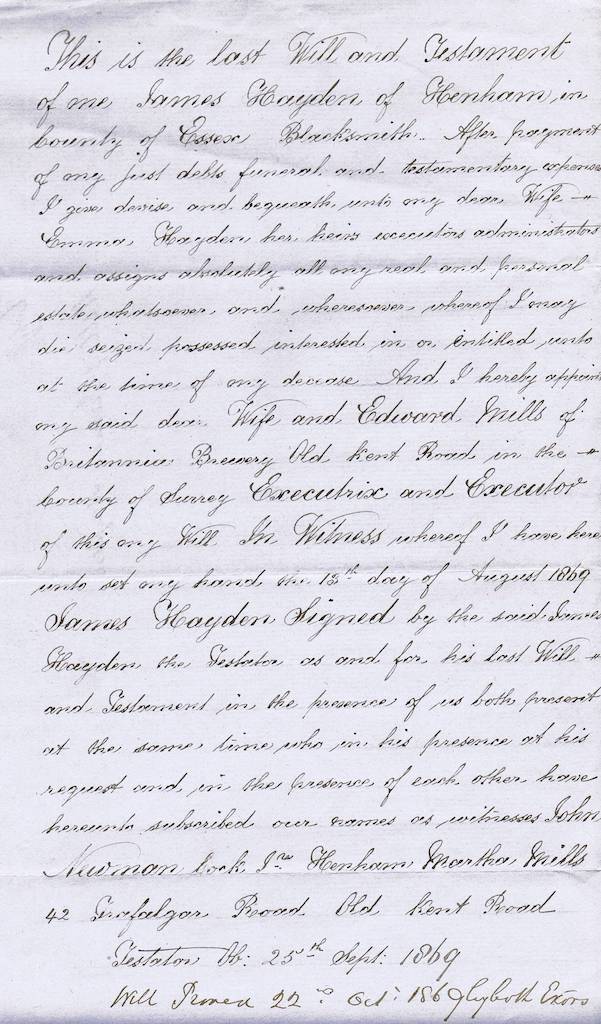 This is the last Will and Testament
of me James Hayden of Henham in
County of Essex Blacksmith. After payment
of my just debts funeral and testamentary expenses
I give devise and bequeath unto my dear Wife
Emma Hayden her heirs executors administrators
and assigns absolutely all my real and personal
estate whatsoever and wheresoever whereof I may
die seized possessed interested in or intitled unto
at the time of my decease And I hereby appoint
my said dear Wife and Edward Mills of
Britannia Brewery Old Kent Road in the
County of Surrey Executrix and Executor
of this my Will In Witness whereof I have here
unto set my hand the 13th day of August 1869
James Hayden Signed by the said James
Hayden the Testator as and for his last Will
and Testament in the presence of us both present
at the same time who in his presence at his
request and in the presence of each other have
hereunto subscribed our names as witnesses John
Newman Cock Jnr Henham Martha Mills
42 Trafalgar Road Old Kent Road
Testator Ob: 25th Sept: 1869
Will Proved 22nd Oct: 1869 by both Exors